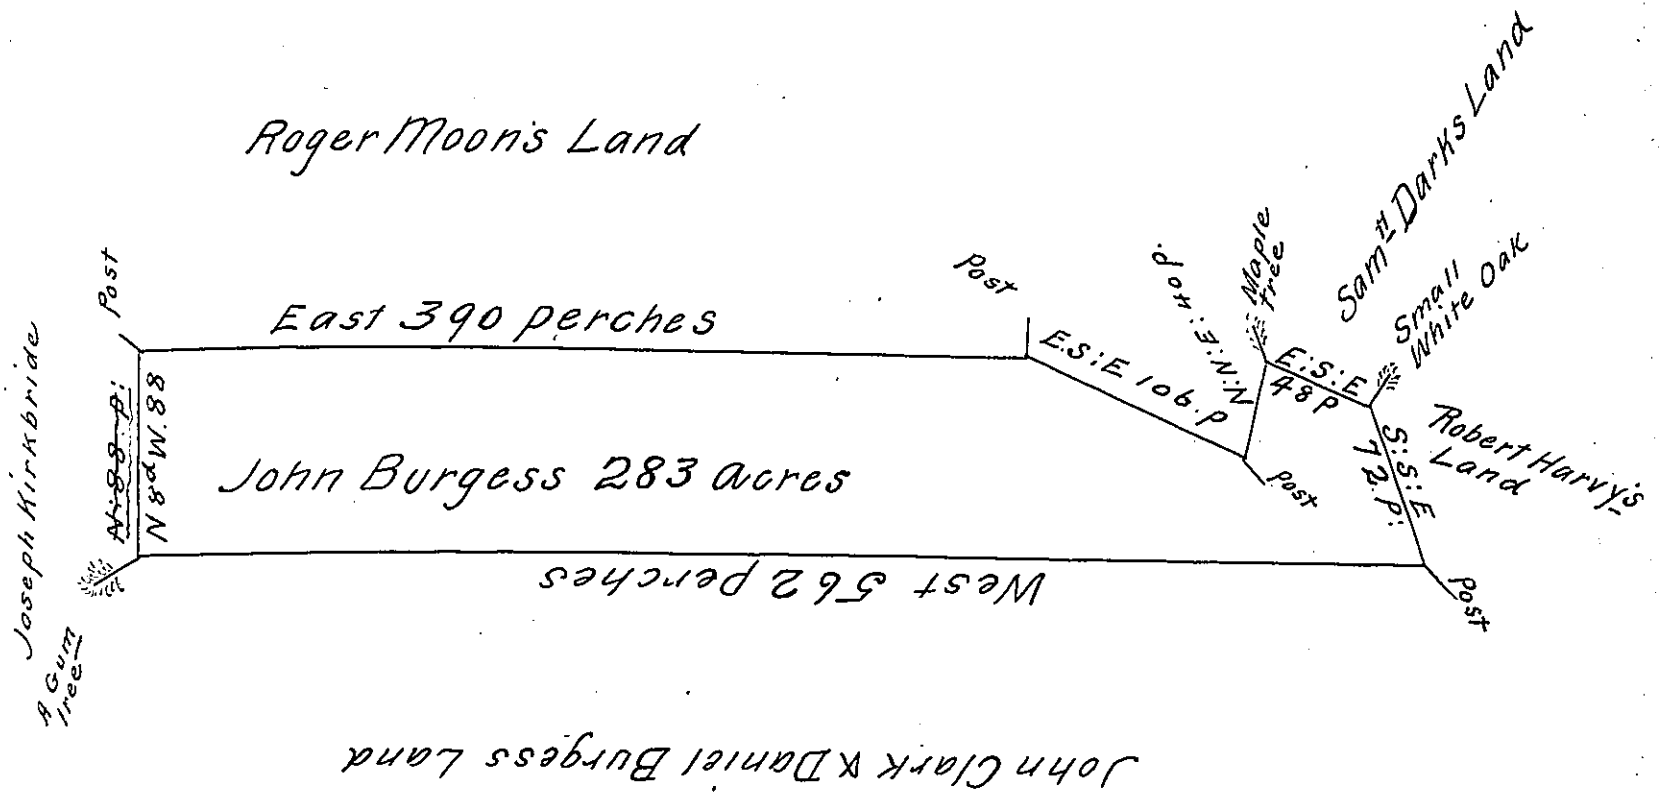 Roger Moon's Land
Sam<sup>ll</sup> Darks Land
Post
East 390 perches
Post
E.S:E 106.P
N:N:E:40 p.
Maple
tree
E:S:E
48 P
Small
White Oak
Robert Harvy's
Land
S:S:E
72.P:
Post
Post
Joseph Kirkbride
N:88:p:
N 8<sup>d</sup> W.88
John Burgess 283 acres
West 562 perches
A Gum
Tree
John Clark & Daniel Burgess Land